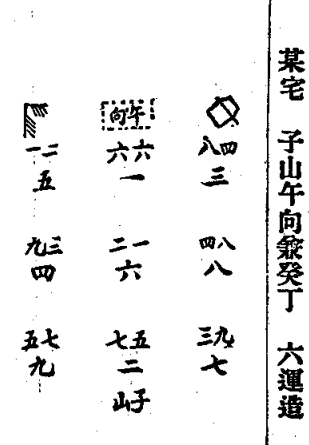 某宅 子山午向兼癸丁 六運造
午向
一二 六六 八四
五 一 三
九三 二一 四八
四 六 八
五七 七五 三九
九 二 七
子山